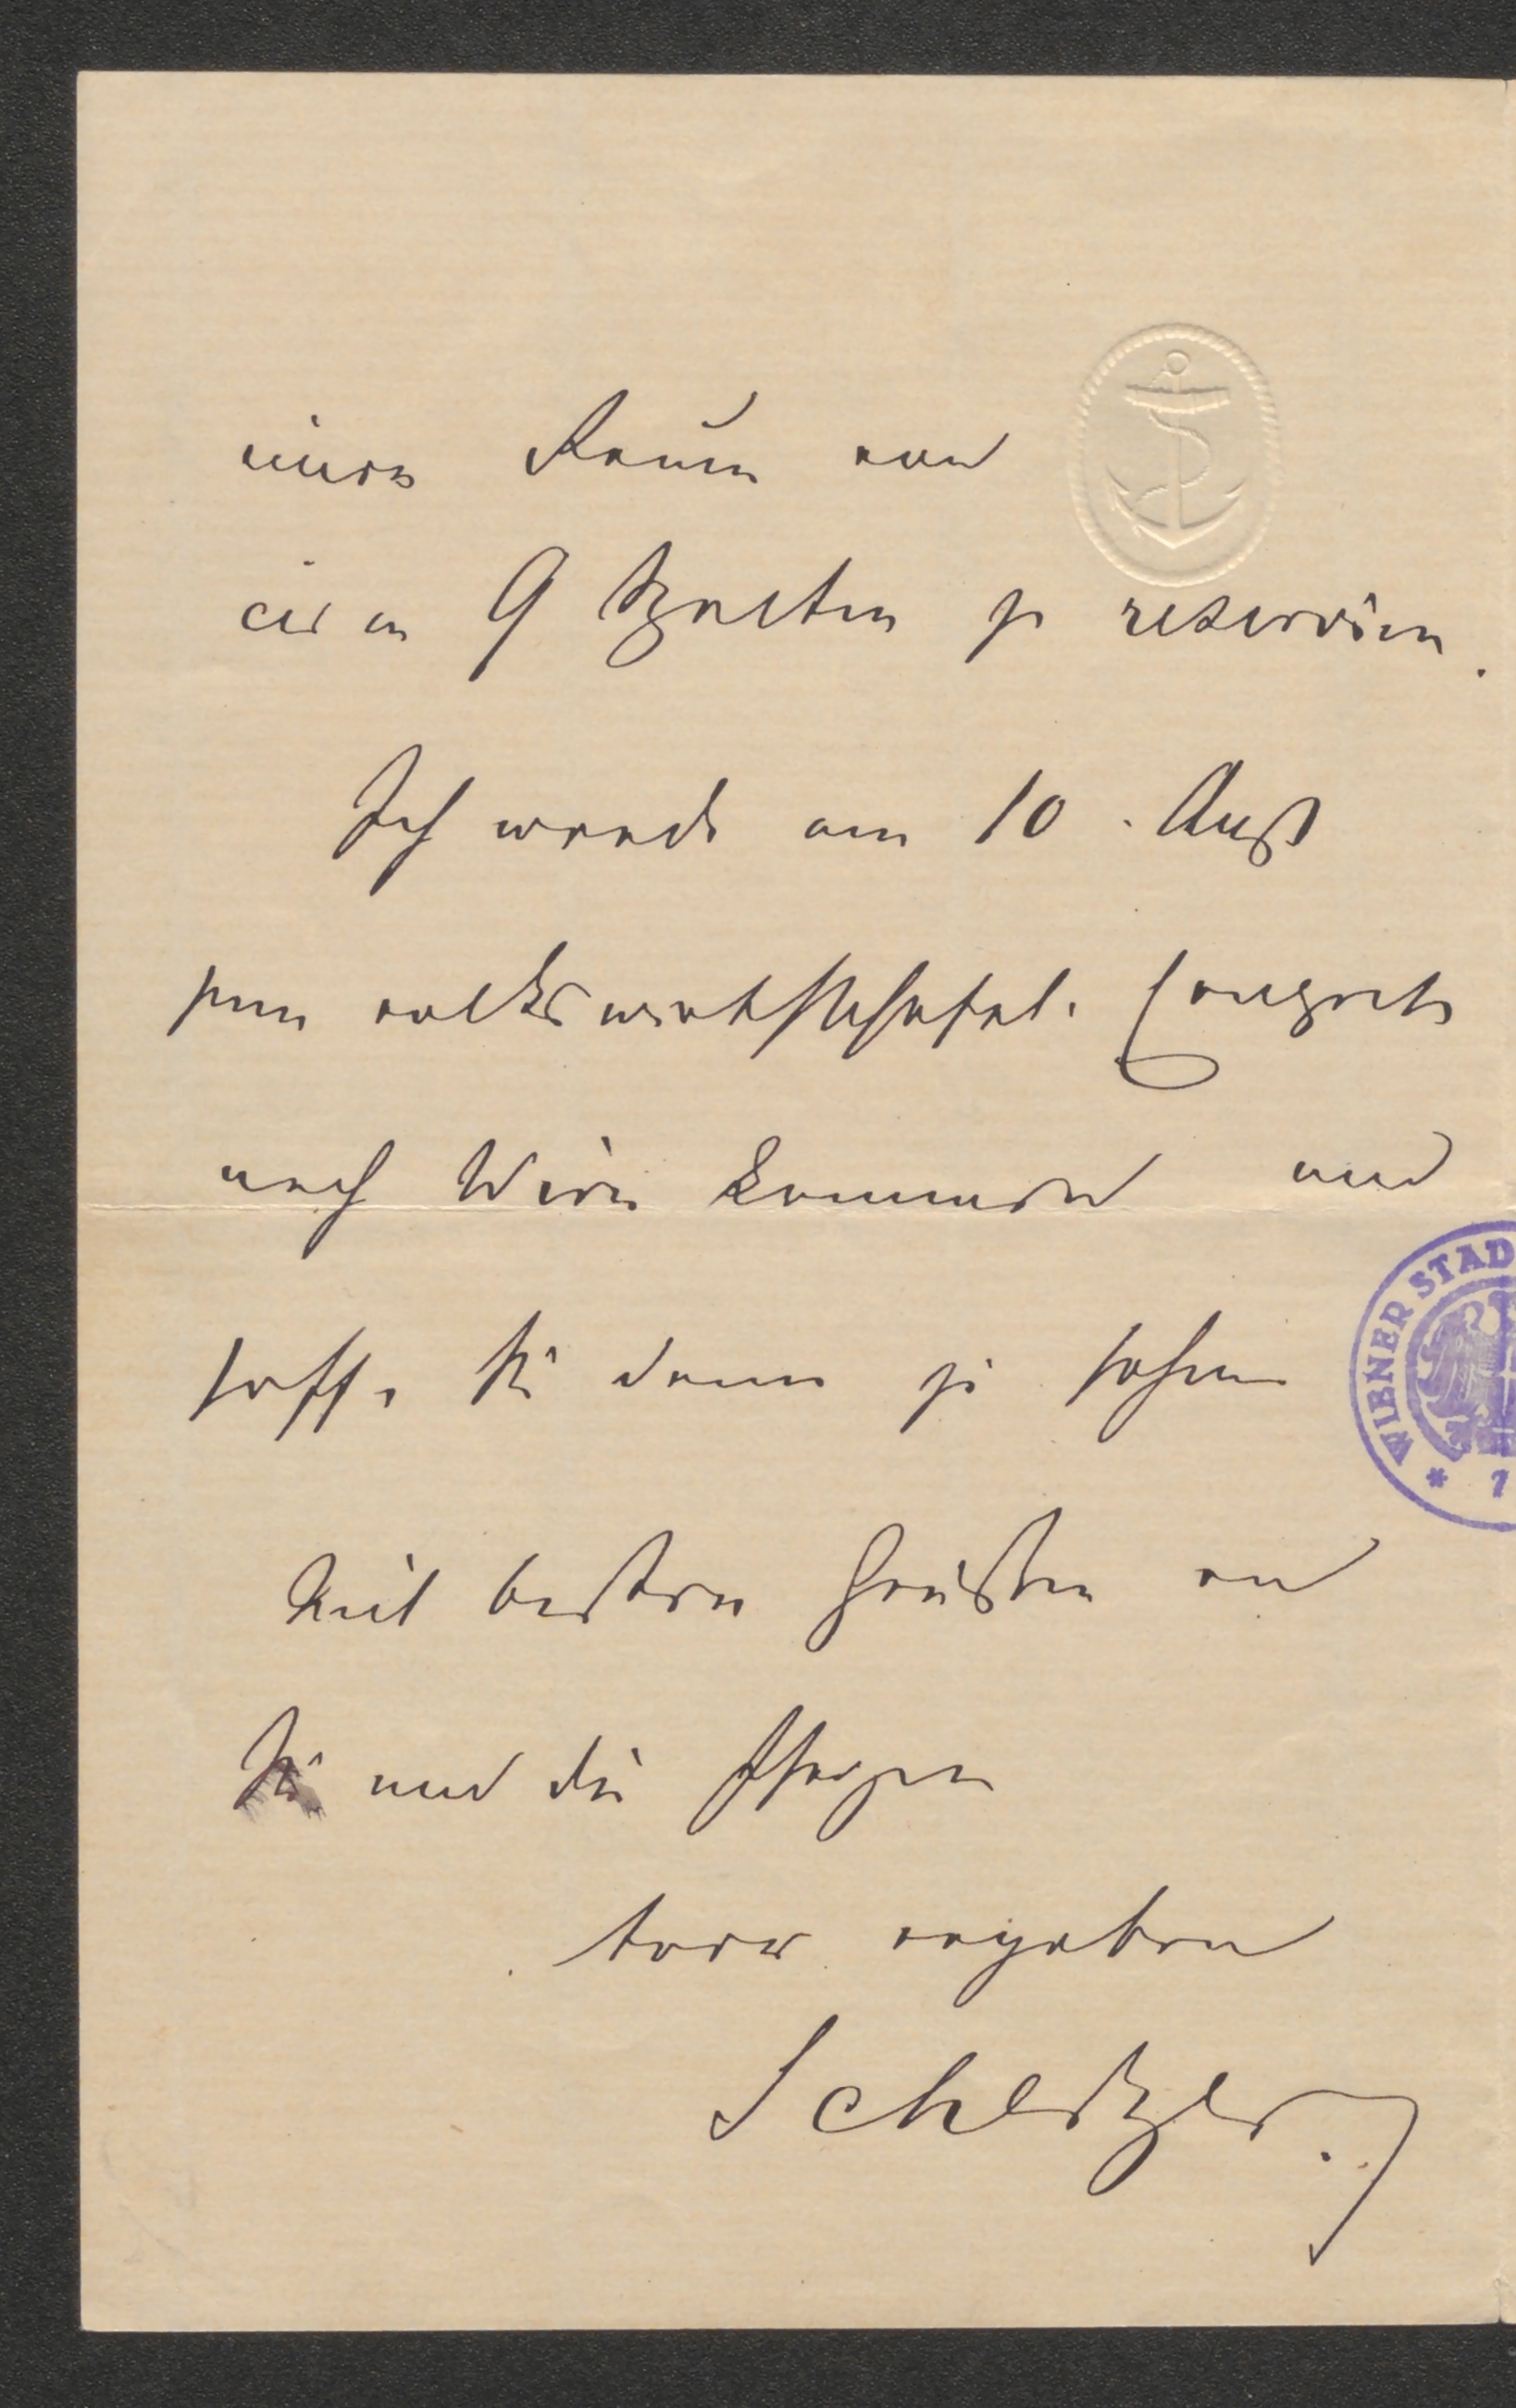 einen Raum von
circa 9 Spalten zu reserviren.
Ich werde am 10. Augst
zum volkswirthschaftl. Congreß
nach Wien kommen und
hoffe Sie dann zu sehen
Mit besten Grüßen an
Sie und die Ihrigen
treu ergeben
Scherzer
WIENER STAD
* 1